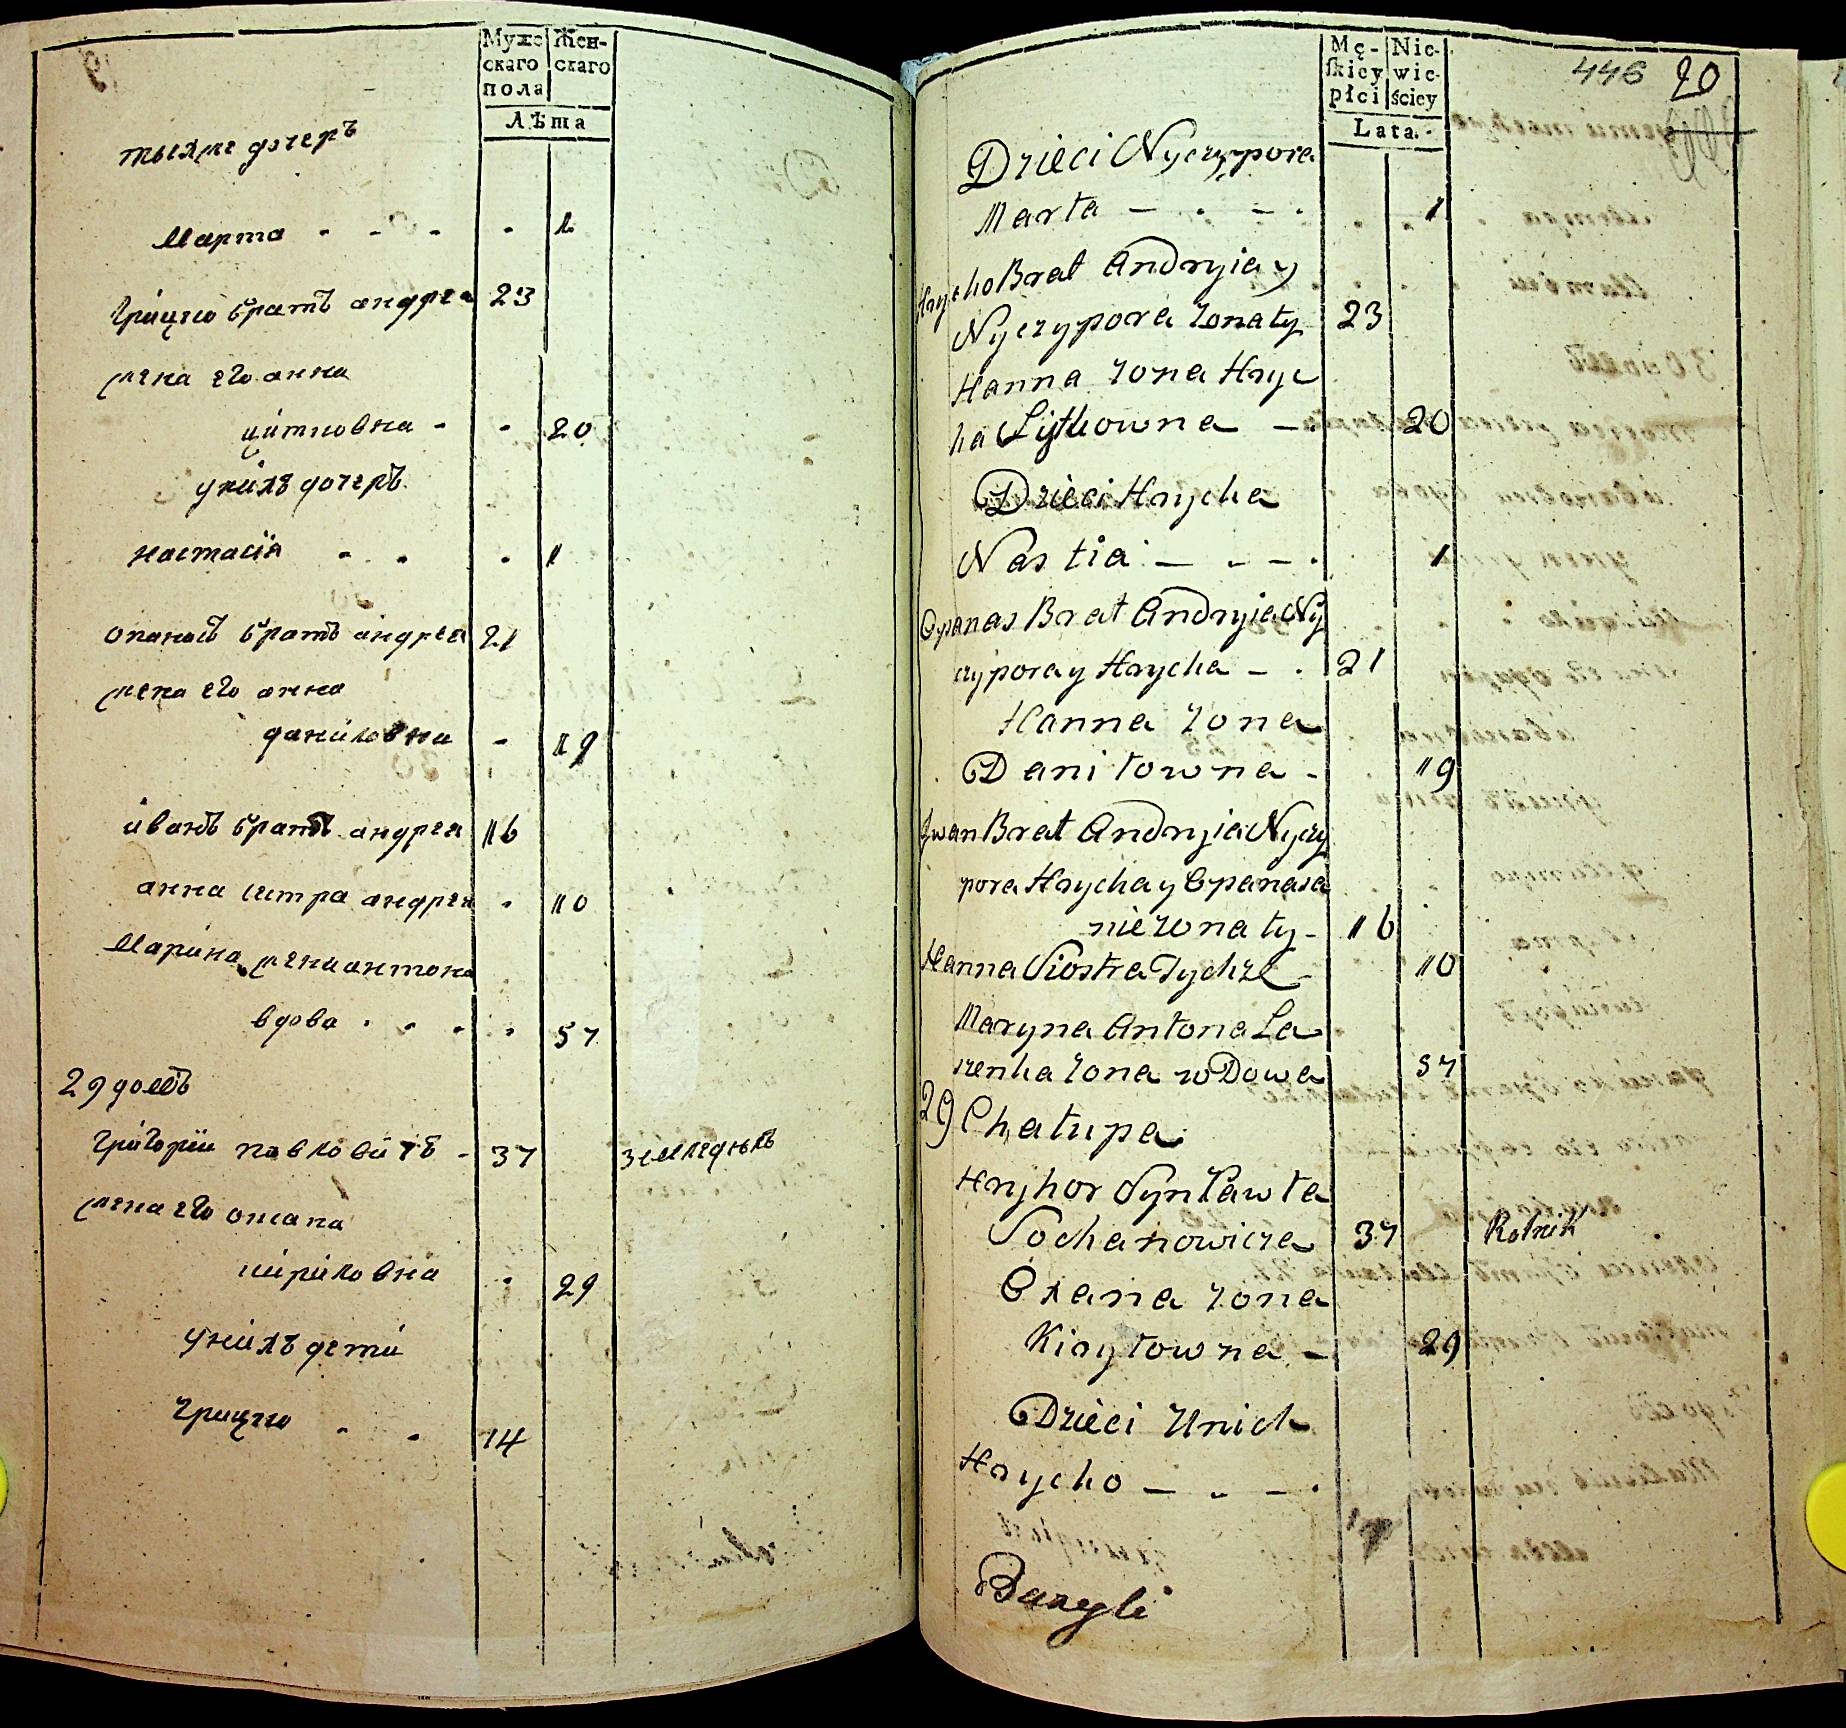 Муже
скаго
пола
Жен-
скаго
Лѣта
тыхже дочеръ
Марта - - - - 1
Грицко братъ андрея 23
жена его анна
цитковна - - 20
у нихъ дочеръ
настасія - - - 1
опанасъ братъ андрея 21
жена его анна
даниловна - 19
иванъ братъ андрея 16
анна сестра андрея - 10
Марина жена антона
вдова - - - - 57
29 домъ
григорiи павловичъ - 37 земледѣлъ
жена его оксана
кириловна - 29
у нихъ дети
грицко - - 14
Mę-
skiey
płci
Nie-
wie-
ściey
Lata.
446 20
Dzieci Nyczypora
Marta - . - . 1
Hrycho Brat Andryia y
Nyczypora żonaty 23
Hanna żona Hryc
ha Cytkowna - . 20
Dzieci Hrycha
Nastia - - - . 1
Opanas Brat Andryia Ny
czypora y Hrycha - . 21
Hanna żona
Daniłowna - 19
Jwan Brat Andryia Nyczy
pora Hrycha y Opanasa
nieżonaty - 16
Hanna Siostra Tychże - 10
Maryna Antona La
szenka żona wDowa 57
29 Chałupa
Hryhor Syn Pawła
Sochanowicza 37 Rolnik
Oxana żona
Kiryłowna - 29
Dzieci Unich
Hrycho - - - .
Bazyli